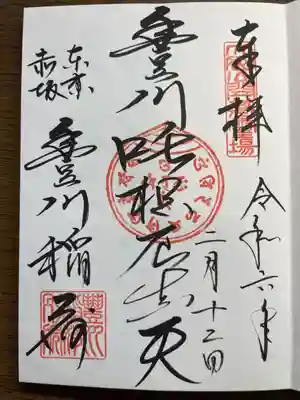 奉拝
令和六年
二月十二日
豊川吒枳尼真天
東京
赤坂
豊川稲荷